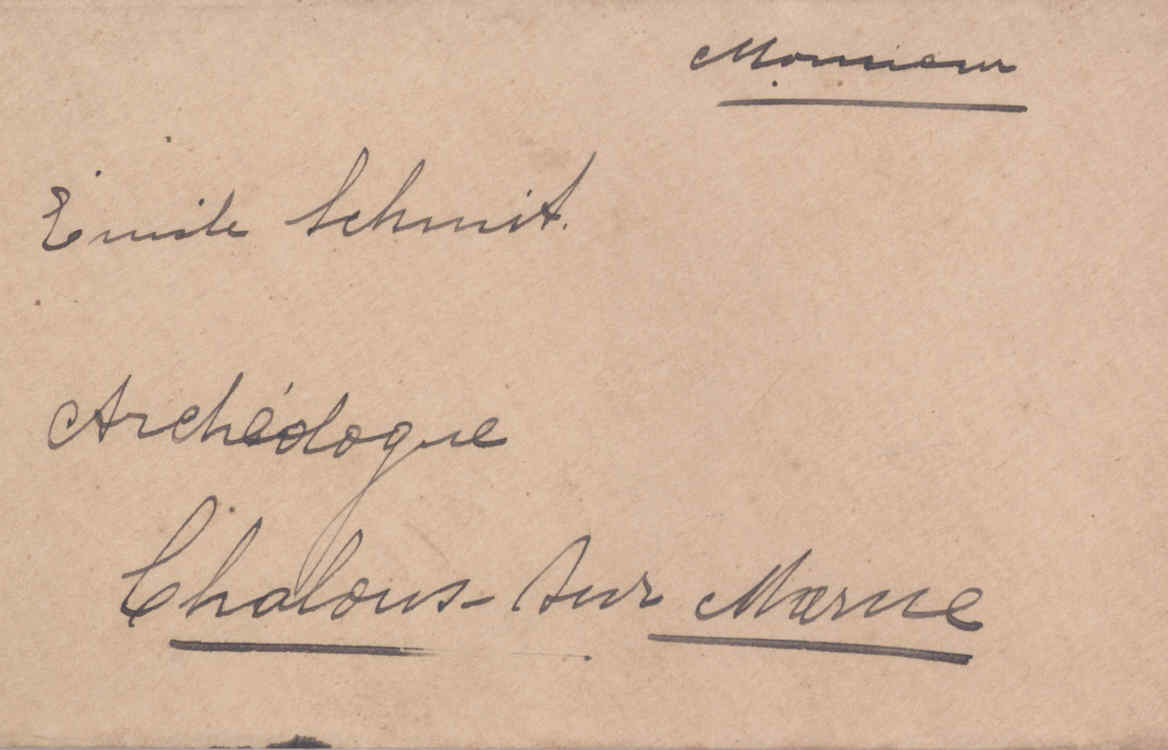 Monsieur
Emile Schmit.
Archéologue
Chalons-sur Marne